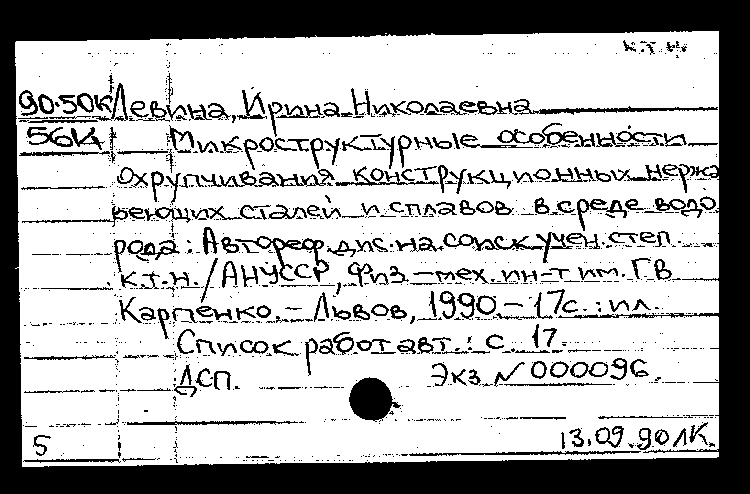 к.т.н.
90-50К Левина, Ирина Николаевна
56К Микроструктурные особенности
охрупчивания конструкционных нержа
веющих сталей и сплавов в среде водо
рода: Автореф.дис.на соиск.учен.степ.
к.т.н./АНУССР, Физ.-мех.ин-т им.ГВ
Карпенко.-Львов, 1990.-17с.:ил.
Список работ авт.: с. 17.
ДСП. Экз.№000096.
5 13.09.90 ЛК.